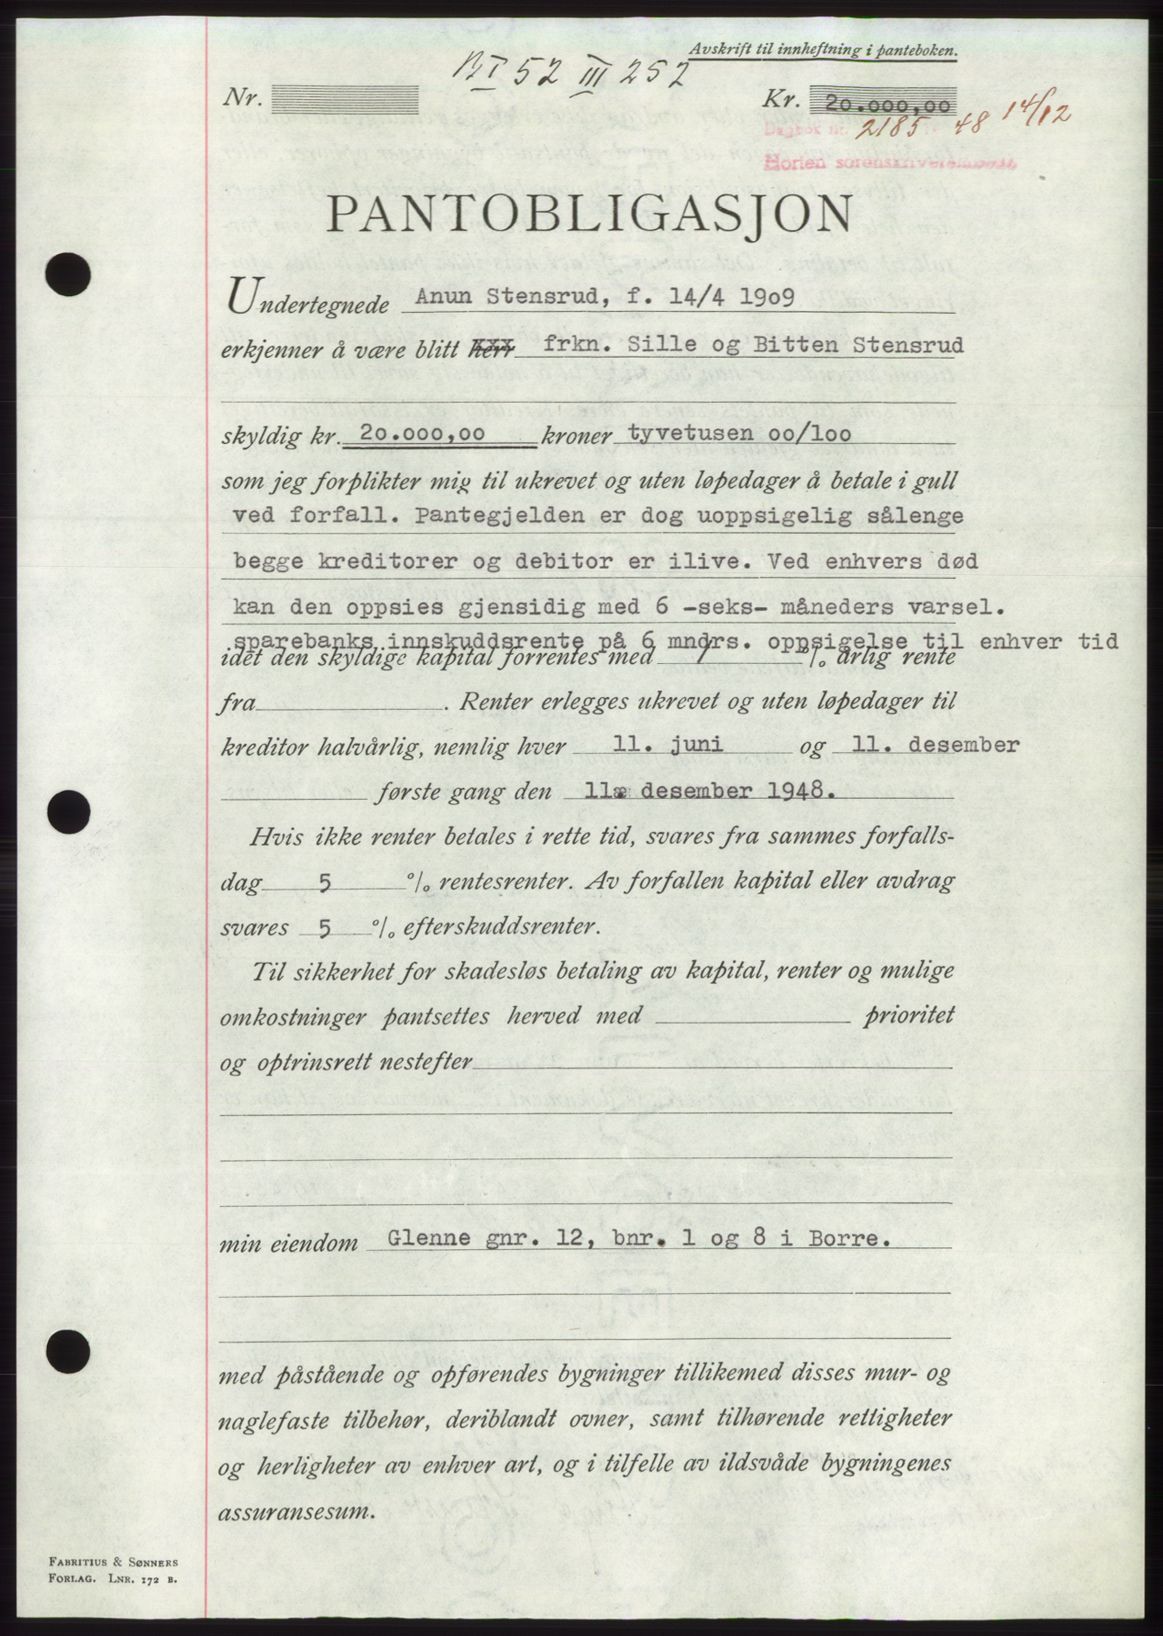 Avskrift til innheftning i panteboken.
52 III 252
Nr.
Kr. 20.000,00
Dagbok nr. 2185 48 14/12
Horten sorenskriverembede
PANTOBLIGASJON
Undertegnede Anun Stensrud, f. 14/4 1909
erkjenner å være blitt herr frkn. Sille og Bitten Stensrud
skyldig kr. 20.000,00 kroner tyvetusen oo/loo
som jeg forplikter mig til ukrevet og uten løpedager å betale i gull
ved forfall. Pantegjelden er dog uoppsigelig sålenge
begge kreditorer og debitor er ilive. Ved enhvers død
kan den oppsies gjensidig med 6 -seks- måneders varsel.
sparebanks innskuddsrente på 6 mndrs. oppsigelse til enhver tid
idet den skyldige kapital forrentes med % årlig rente
fra . Renter erlegges ukrevet og uten løpedager til
kreditor halvårlig, nemlig hver 11. juni og 11. desember
første gang den 11. desember 1948.
Hvis ikke renter betales i rette tid, svares fra sammes forfalls-
dag 5 % rentesrenter. Av forfallen kapital eller avdrag
svares 5 % efterskuddsrenter.
Til sikkerhet for skadesløs betaling av kapital, renter og mulige
omkostninger pantsettes herved med prioritet
og optrinsrett nestefter
min eiendom Glenne gnr. 12, bnr. 1 og 8 i Borre.
med påstående og opførendes bygninger tillikemed disses mur- og
naglefaste tilbehør, deriblandt ovner, samt tilhørende rettigheter
og herligheter av enhver art, og i tilfelle av ildsvåde bygningenes
assuransesum.
Fabritius & Sønners
Forlag. Lnr. 172 B.